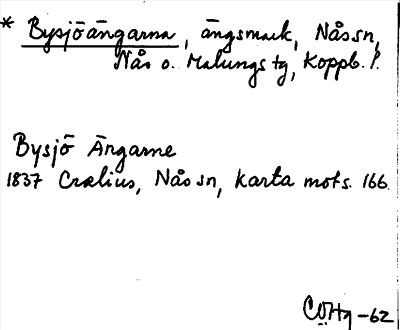 * Bysjöängarna, ängsmark, Nås sn,
Nås o. Malungs tg, Koppb. l.
Bysjö Ängarne
1837 Crælius, Nås sn, karta mots. 166.
CÖHg -62